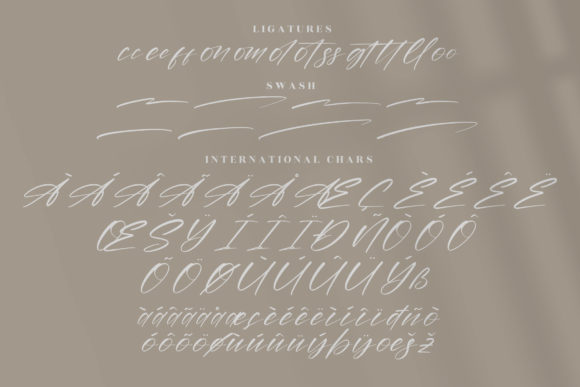 LIGATURES
cc ee ff on om ot ts ss gt tt ll oo
SWASH
INTERNATIONAL CHARS
À Á Â Ã Ä Å Æ Ç È É Ê Ë
Œ Š Ÿ Í Î Ï Ð Ñ Ò Ó Ô
Õ Ö Ø Ù Ú Û Ü Ý ß
à á â ã ä å æ ç è é ê ë ì í î ï đ ñ ò
ó ô õ ö ø ù ú û ü ý þ ÿ œ š ž